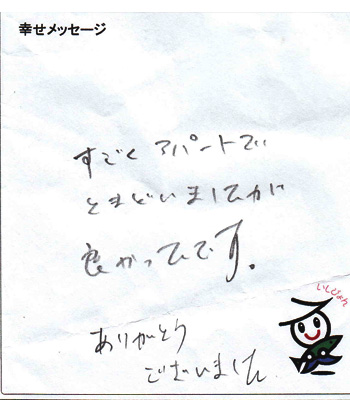 幸せメッセージ
すごく アパートで
とまどいましたが
良かったです。
ありがとう
ございました
いしぴょん